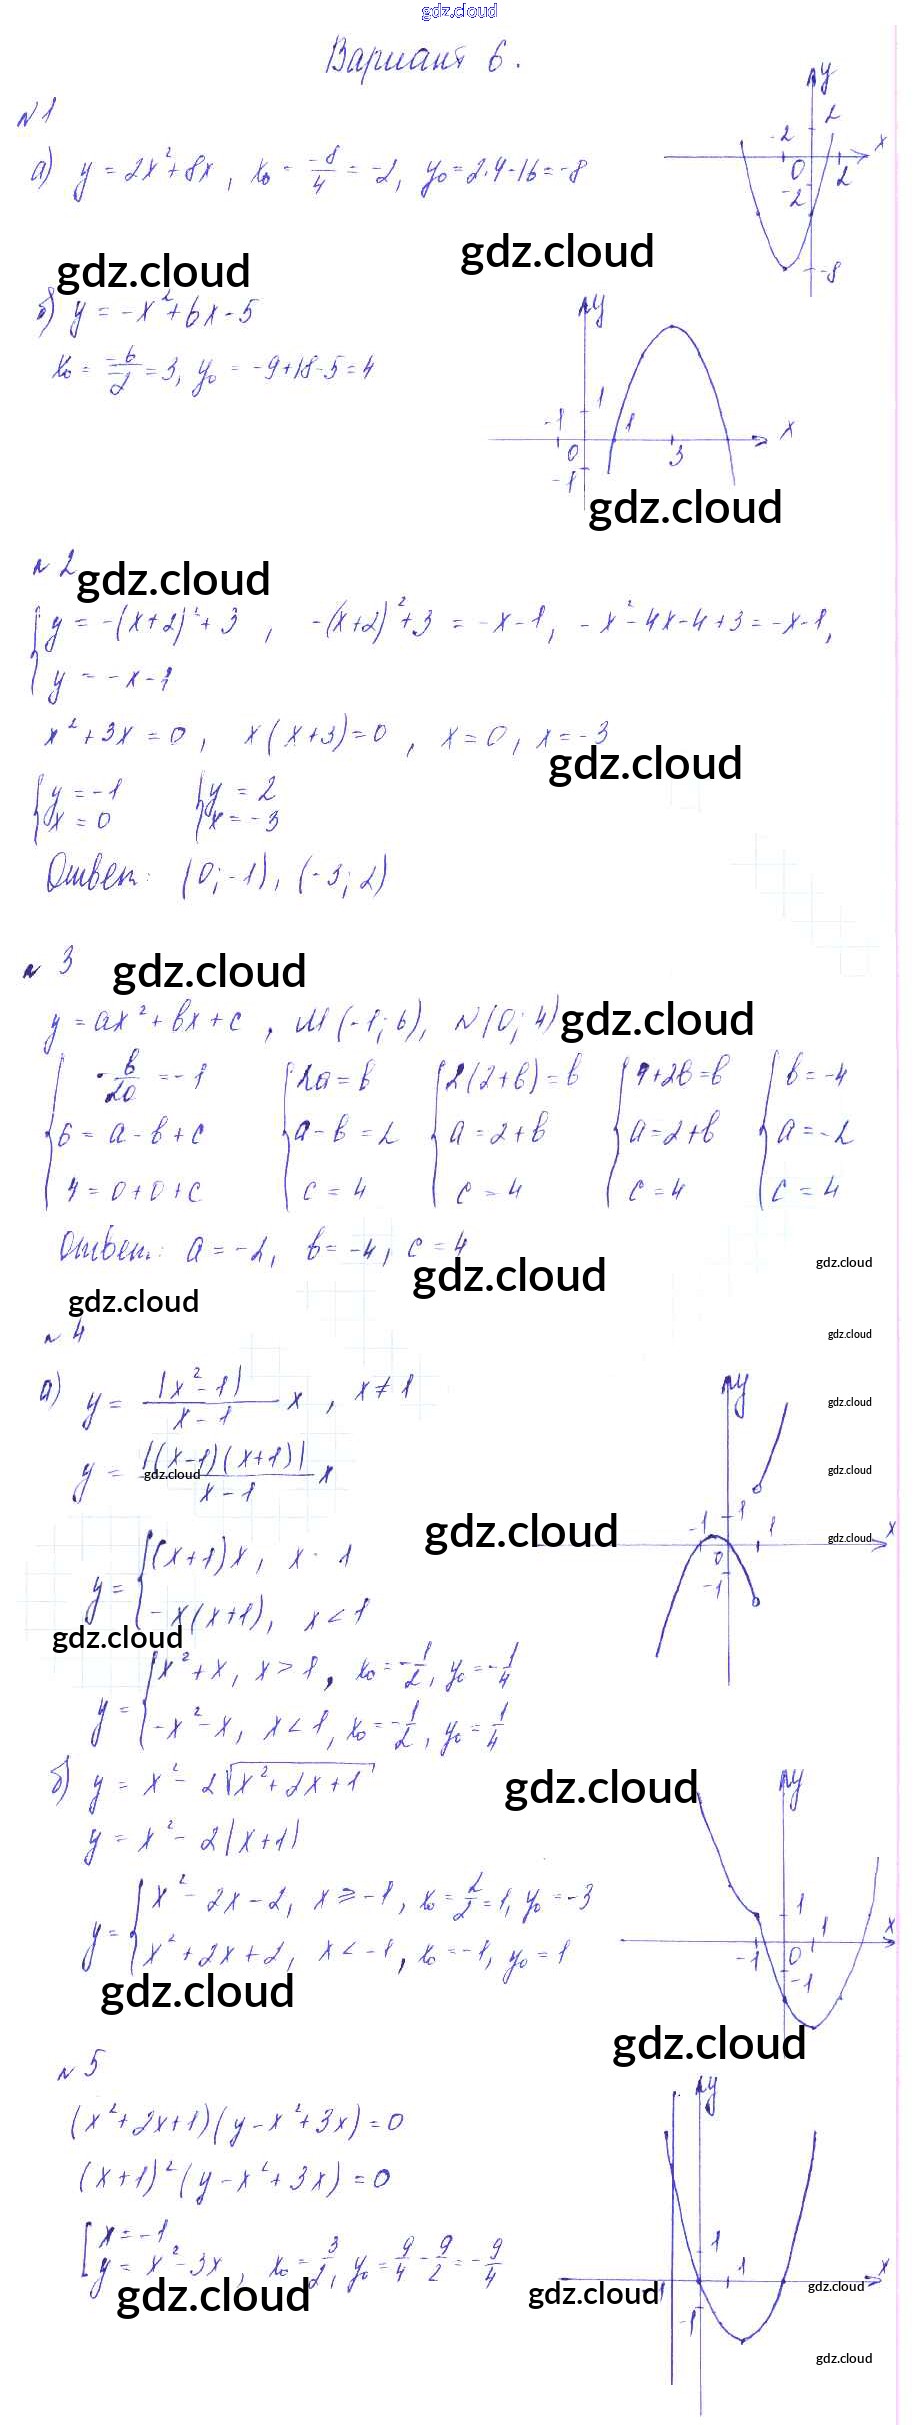 gdz.cloud
Вариант 6.
№1
а) y = 2x²+8x, x₀ = -8/4 = -2, y₀ = 2·4-16 = -8
y
2
-2
x
0
2
-2
-8
gdz.cloud
gdz.cloud
б) y = -x²+6x-5
x₀ = -6/-2 = 3, y₀ = -9+18-5 = 4
y
1
-1
1
x
0
3
-1
gdz.cloud
№2
gdz.cloud
{ y = -(x+2)²+3, -(x+2)²+3 = -x-1, -x²-4x-4+3 = -x-1,
y = -x-1
x²+3x = 0, x(x+3) = 0, x = 0, x = -3
gdz.cloud
{ y = -1 { y = 2
x = 0 x = -3
Ответ: (0; -1), (-3; 2)
№3
gdz.cloud
y = ax²+bx+c, M(-1; 6), N(0; 4)
gdz.cloud
{ -b/2a = -1 { 2a = b { 2(2+b) = b { 4+2b = b { b = -4
6 = a-b+c a-b = 2 a = 2+b a = 2+b a = -2
4 = 0+0+c c = 4 c = 4 c = 4 c = 4
Ответ: a = -2, b = -4, c = 4
gdz.cloud
gdz.cloud
gdz.cloud
№4
gdz.cloud
а) y = |x²-1|/x-1 x, x ≠ 1
y
gdz.cloud
y = |(x-1)(x+1)|/x-1 x
gdz.cloud
gdz.cloud
gdz.cloud
-1
1
1
x
gdz.cloud
0
-1
y = { (x+1)x, x 1
-x(x+1), x < 1
gdz.cloud
y = { x²+x, x > 1, x₀ = -1/2, y₀ = -1/4
-x²-x, x < 1, x₀ = -1/2, y₀ = 1/4
б) y = x²-2√x²+2x+1
gdz.cloud
y
y = x²-2|x+1|
y = { x²-2x-2, x ≥ -1, x₀ = 2/2 = 1, y₀ = -3
x²+2x+2, x < -1, x₀ = -1, y₀ = 1
1
1
x
-1
0
-1
gdz.cloud
gdz.cloud
№5
(x²+2x+1)(y-x²+3x) = 0
y
(x+1)²(y-x²+3x) = 0
[ x = -1
y = x²-3x, x₀ = 3/2, y₀ = 9/4 - 9/2 = -9/4
1
1
x
-1
gdz.cloud
gdz.cloud
gdz.cloud
-1
gdz.cloud